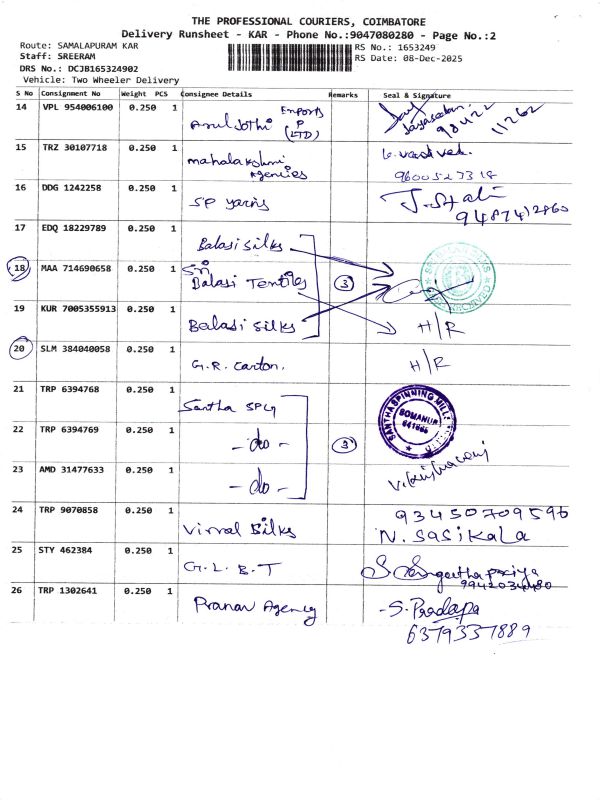 THE PROFESSIONAL COURIERS, COIMBATORE
Delivery Runsheet - KAR - Phone No.:9047080280 - Page No.:2
Route: SAMALAPURAM KAR
RS No.: 1653249
Staff: SREERAM
RS Date: 08-Dec-2025
DRS No.: DCJB165324902
Vehicle: Two Wheeler Delivery
S No Consignment No Weight PCS Consignee Details Remarks Seal & Signature
14 VPL 954006100 0.250 1 Arul Jothi Exports P (LTD) 98422 11262
15 TRZ 30107718 0.250 1 mahalakshmi Agencies
9600527318
16 DDG 1242258 0.250 1 SP yarns
9487412860
17 EDQ 18229789 0.250 1 Balasi Silks
18 MAA 714690658 0.250 1 Sri Balasi Textiles 3
19 KUR 7005355913 0.250 1 Balasi Silks H/R
20 SLM 384040058 0.250 1 G.R. Carton. H/R
21 TRP 6394768 0.250 1 Santha SPG
SANTHA SPINNING MILLS SOMANUR
22 TRP 6394769 0.250 1 - do - 3
23 AMD 31477633 0.250 1 - do -
24 TRP 9070858 0.250 1 Virral Silks
N. Sasikala
25 STY 462384 0.250 1 G.L.B.T
26 TRP 1302641 0.250 1 Pranav Agency
6379337889